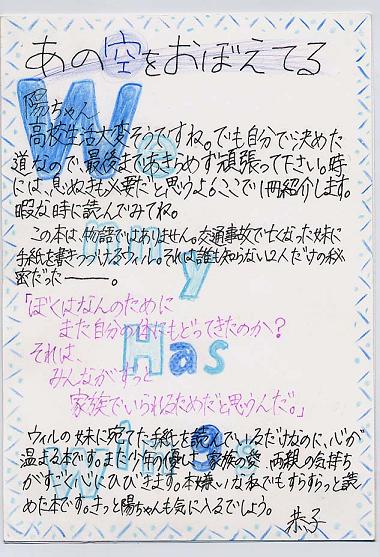 あの空をおぼえてる
We
陽ちゃん
高校生活大変そうですね。でも自分で決めた
道なので、最後まであきらめず頑張って下さい。時
には、息ぬきも必要だと思うよ。ここで1冊紹介します。
暇な時に読んでみてね。
この本は物語ではありません。交通事故で亡くなった妹に
手紙を書きつづけるウィル。それは誰も知らない2人だけの秘
密だった――。
「ぼくはなんのために
また自分の体にもどってきたのか?
それは、
みんながずっと
家族でいられるためだと思うんだ。」
Has
ウィルの妹に宛てた手紙を読んでいるだけなのに、心が
温まる本です。また少年の優しさ、家族の愛、両親の気持ち
がすごく心にひびきます。本嫌いな私でもすらすらっと読
めた本です。きっと陽ちゃんも気に入るでしょう。
Wings
恭子